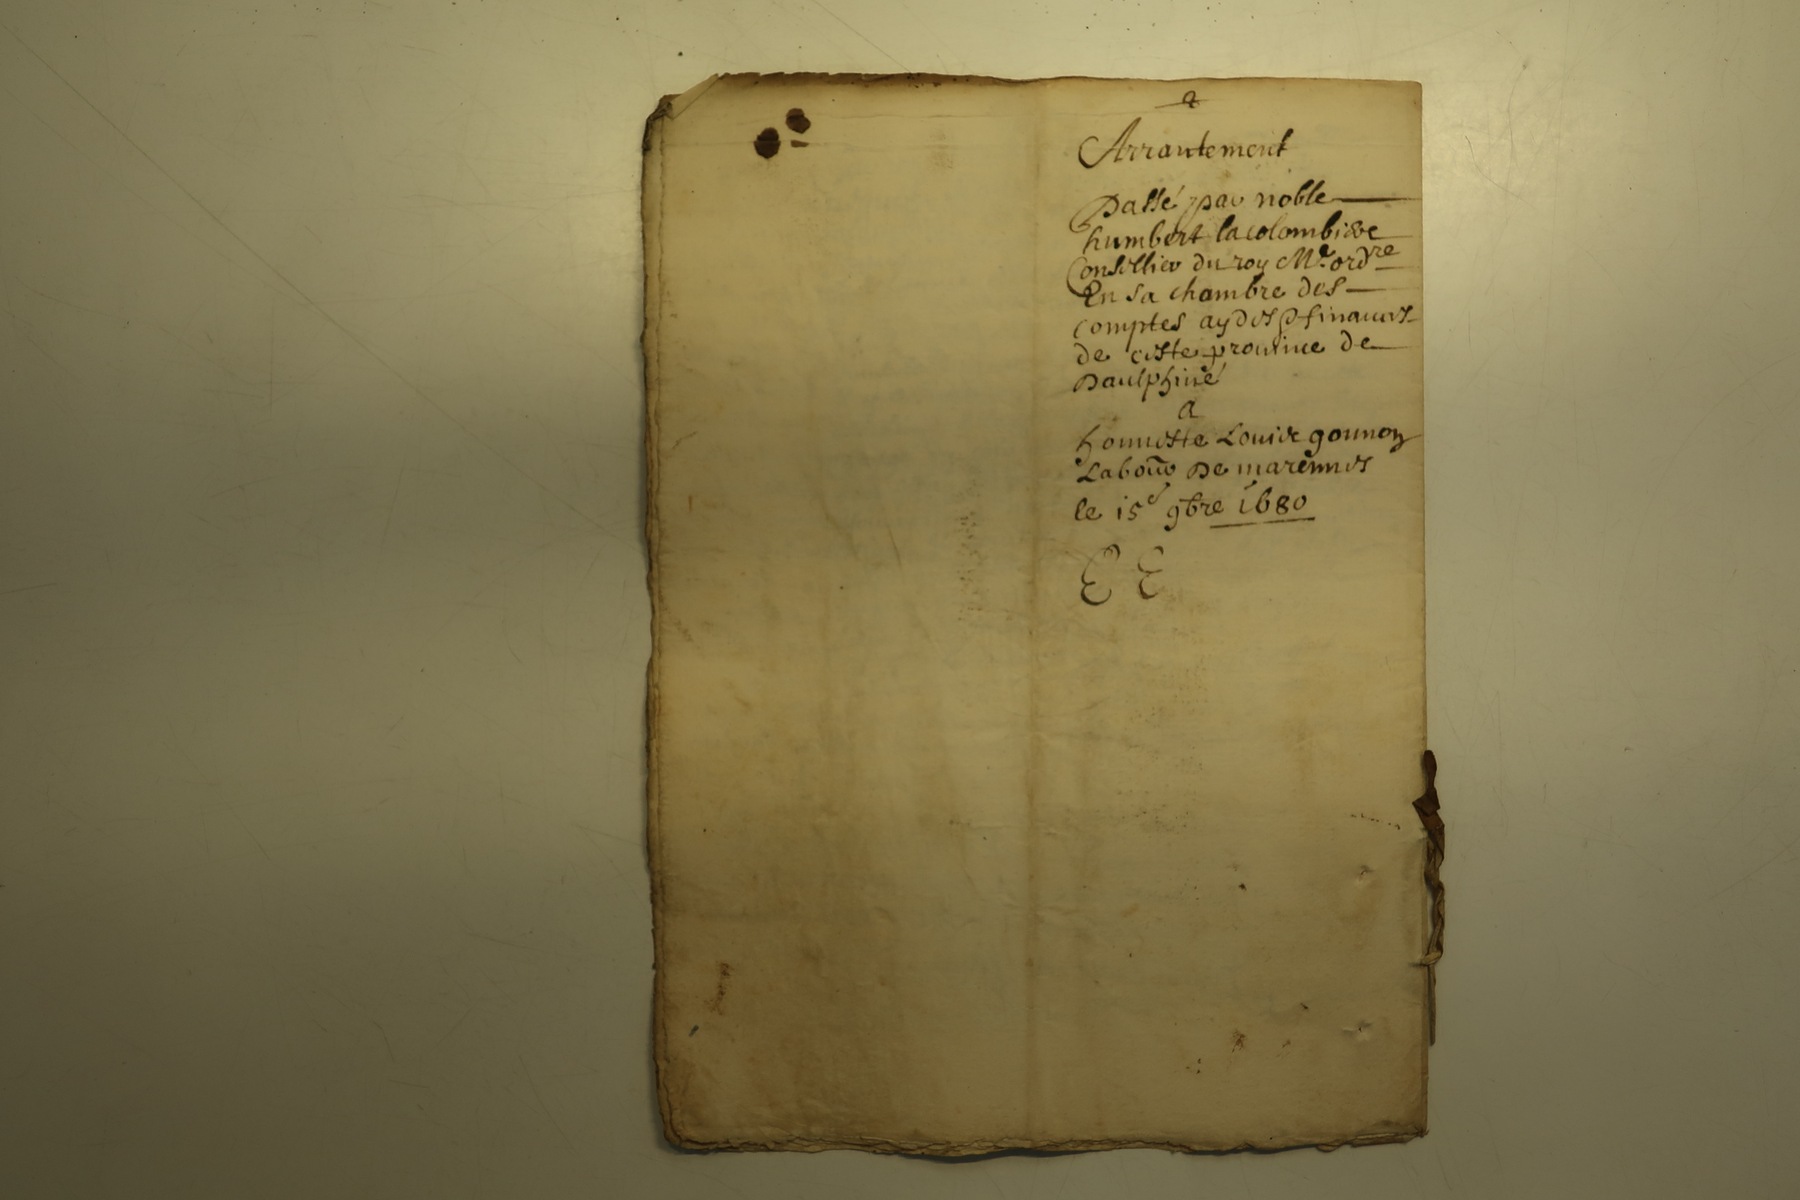 a
Arrantement
Passé par noble
humbert lacolombiere
Consellier du roy Me ordre
En sa chambre des
comptes aydes & finances
de ceste province de
Daulphiné
a
honneste Louis gounon
Labour De marennes
le 15e 9bre 1680
E E